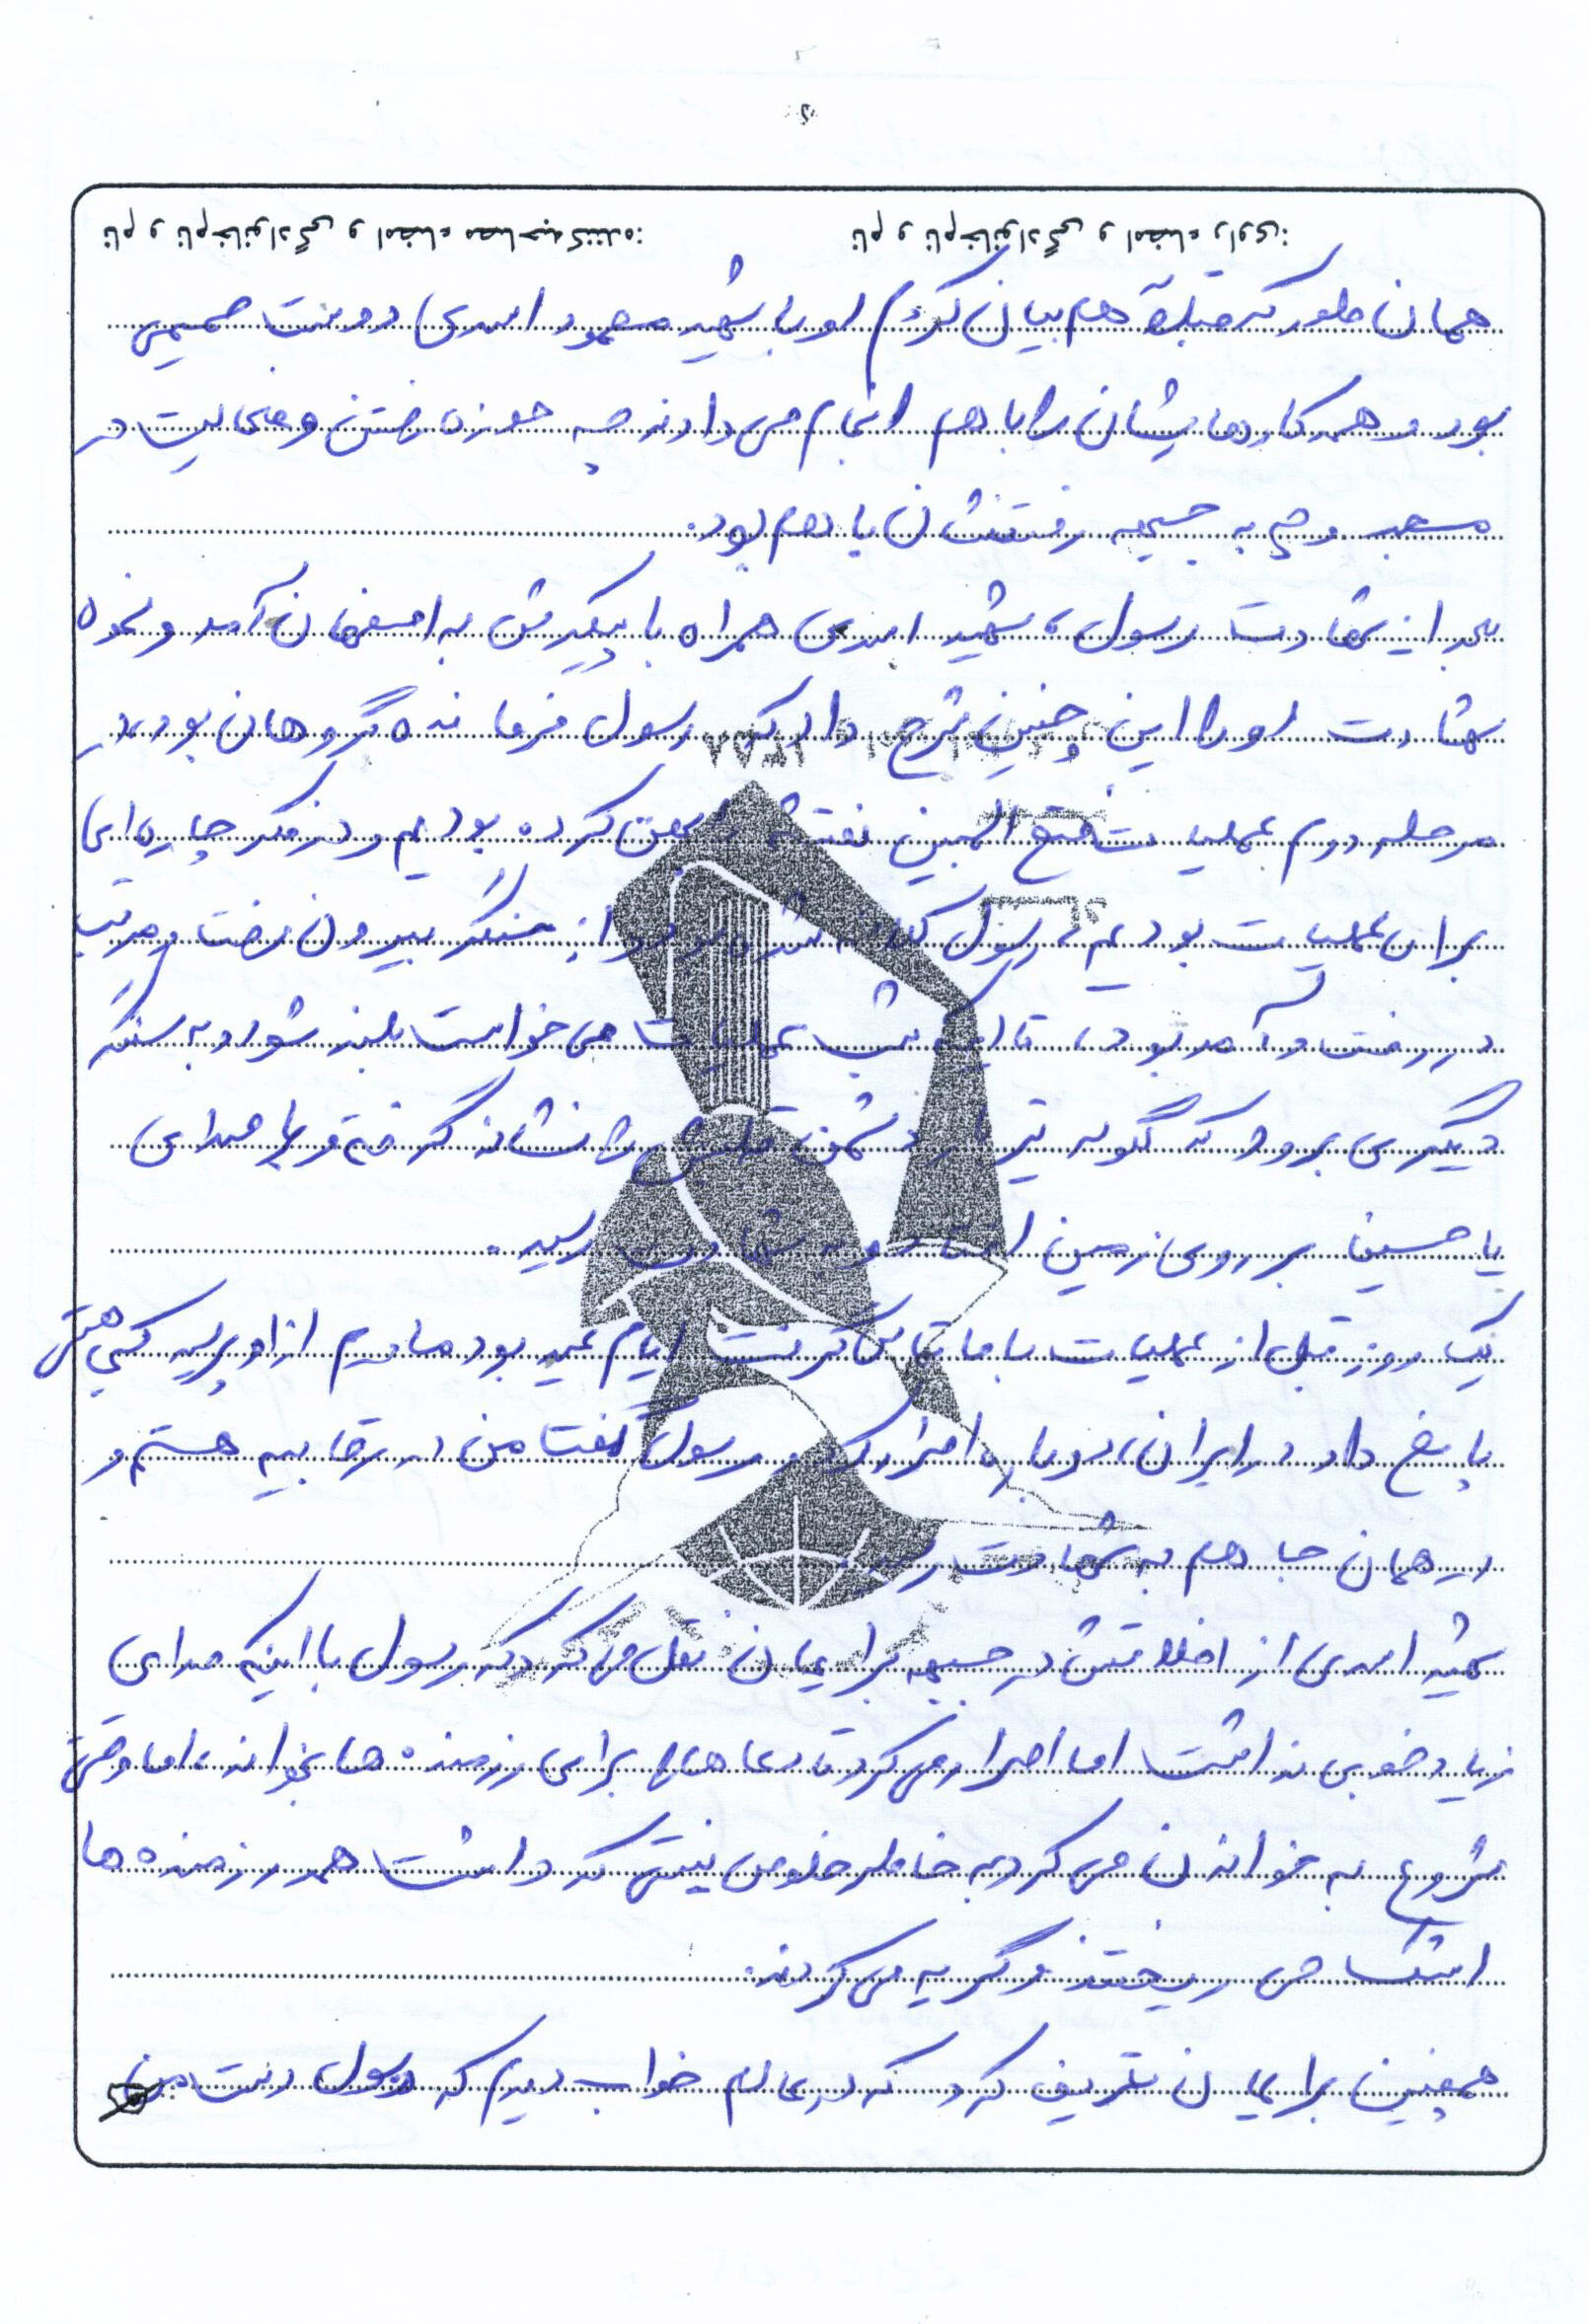 نام و نام خانوادگی و امضاء راوی: نام و نام خانوادگی و امضاء مصاحبه‌کننده:
همان طور که قبلاً هم بیان کردم او با شهید محمود اسدی دوست صمیمی
بود و همه کارهایشان را با هم انجام می دادند چه حوزه رفتن و فعالیت در
مسجد و چه به جبهه رفتنشان با هم بود.
بعد از شهادت رسول، شهید اسدی همراه با پیکرش به اصفهان آمد و نحوه
شهادت او را این چنین شرح داد که رسول فرمانده گروهان بود، در
مرحله دوم عملیات فتح المبین نقشه کرده بودیم و در فکر چاره ای
برای عملیات بودیم، رسول کلافه شده بود و از سنگر بیرون رفت و مرتب
در رفت و آمد بود، تا اینکه شب عملیات می خواست بلند شود و به سنگر
دیگری برود که گلوله تیربار دشمن قلبش را نشانه گرفت و با صدای
یا حسین بر روی زمین افتاد و به شهادت رسید.
یک روز قبل از عملیات با ما تماس گرفت ایام عید بود مادرم از او پرسید کجا هستی
پاسخ داد در ایران، دوباره اصرار کرد و رسول گفت من در رقابیه هستم و
در همان جا هم به شهادت رسید.
شهید اسدی از اخلاقش در جبهه برایمان نقل می کرد که رسول با اینکه صدای
زیاد خوبی نداشت اما اصرار می کرد تا دعاها را برای رزمنده ها بخواند، اما وقتی
شروع به خواندن می کرد به خاطر خلوص نیتش که داشت همه رزمنده ها
اشک می ریختند و گریه می کردند.
همچنین برایمان تعریف کرد که در عالم خواب دیدم که رسول دست من